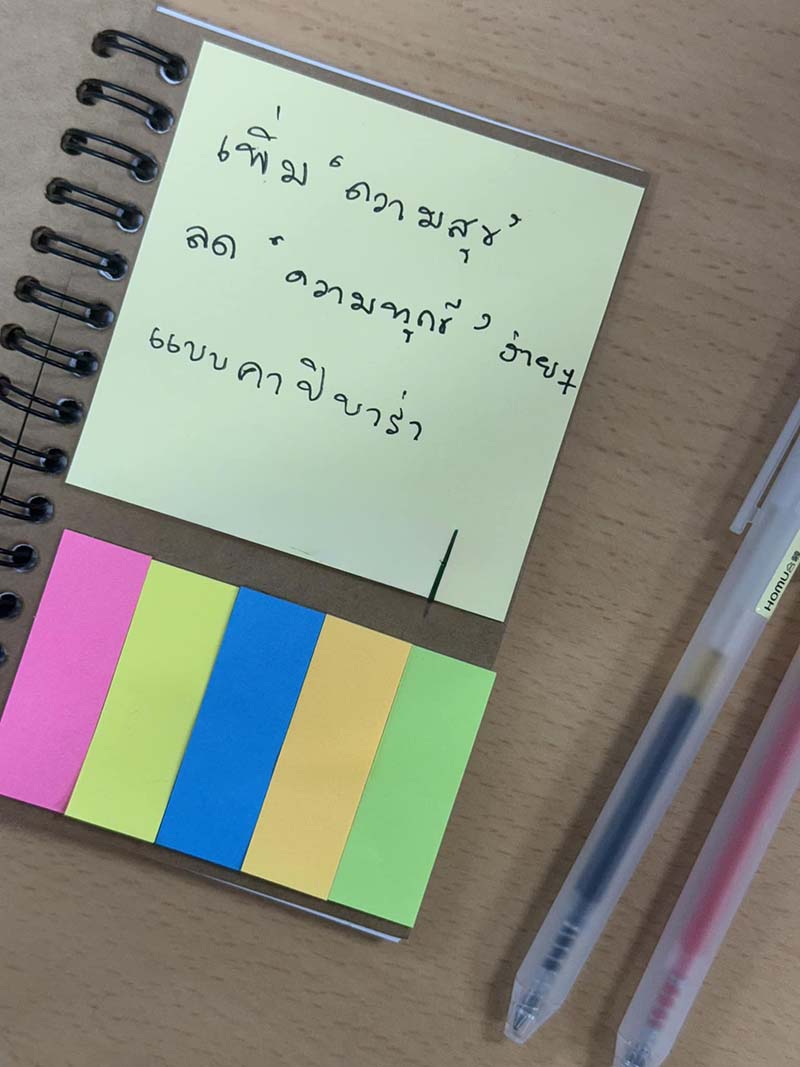 เพิ่ม ‘ความสุข’
ลด ‘ความทุกข์’ ง่ายๆ
แบบคาปิบาร่า
HOMU